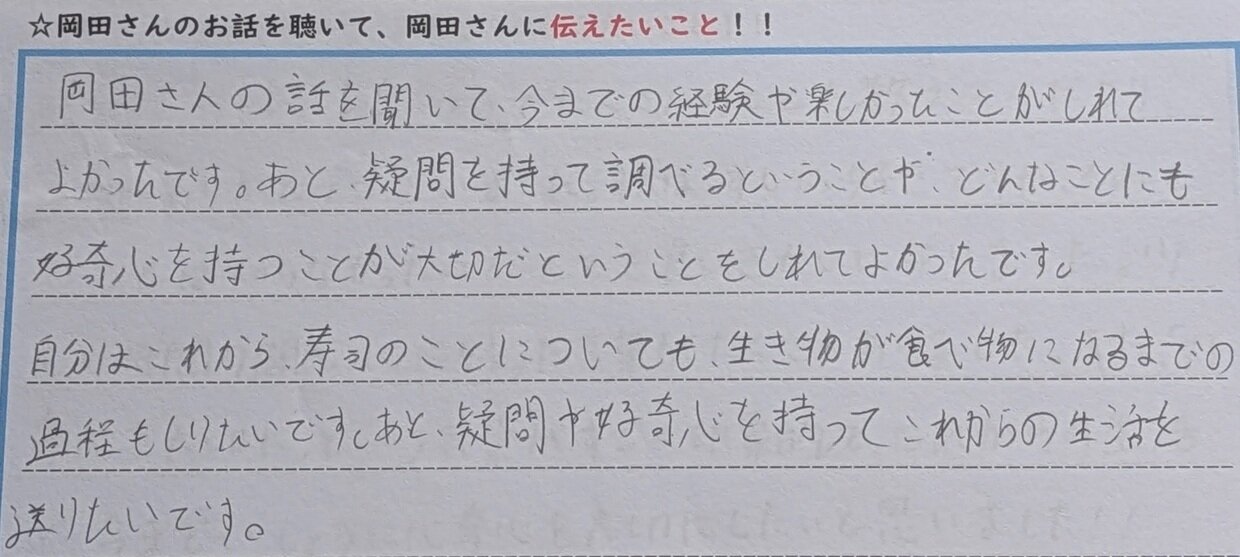 ☆岡田さんのお話を聴いて、岡田さんに伝えたいこと！！
岡田さんの話を聞いて、今までの経験や楽しかったことがしれて
よかったです。あと、疑問を持って調べるということや、どんなことにも
好奇心を持つことが大切だということをしれてよかったです。
自分はこれから、寿司のことについても、生き物が食べ物になるまでの
過程もしりたいです。あと、疑問や好奇心を持ってこれからの生活を
送りたいです。